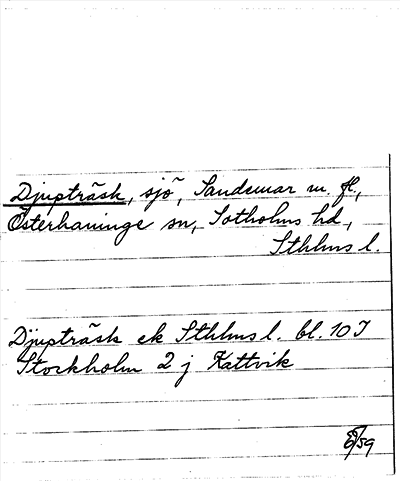 Djupträsk, sjö, Sandemar m. fl.,
Österhaninge sn, Sotholms hd,
Sthlms l.
Djupträsk ek Sthlms l. bl. 10 I
Stockholm 2 j Kattvik
/59